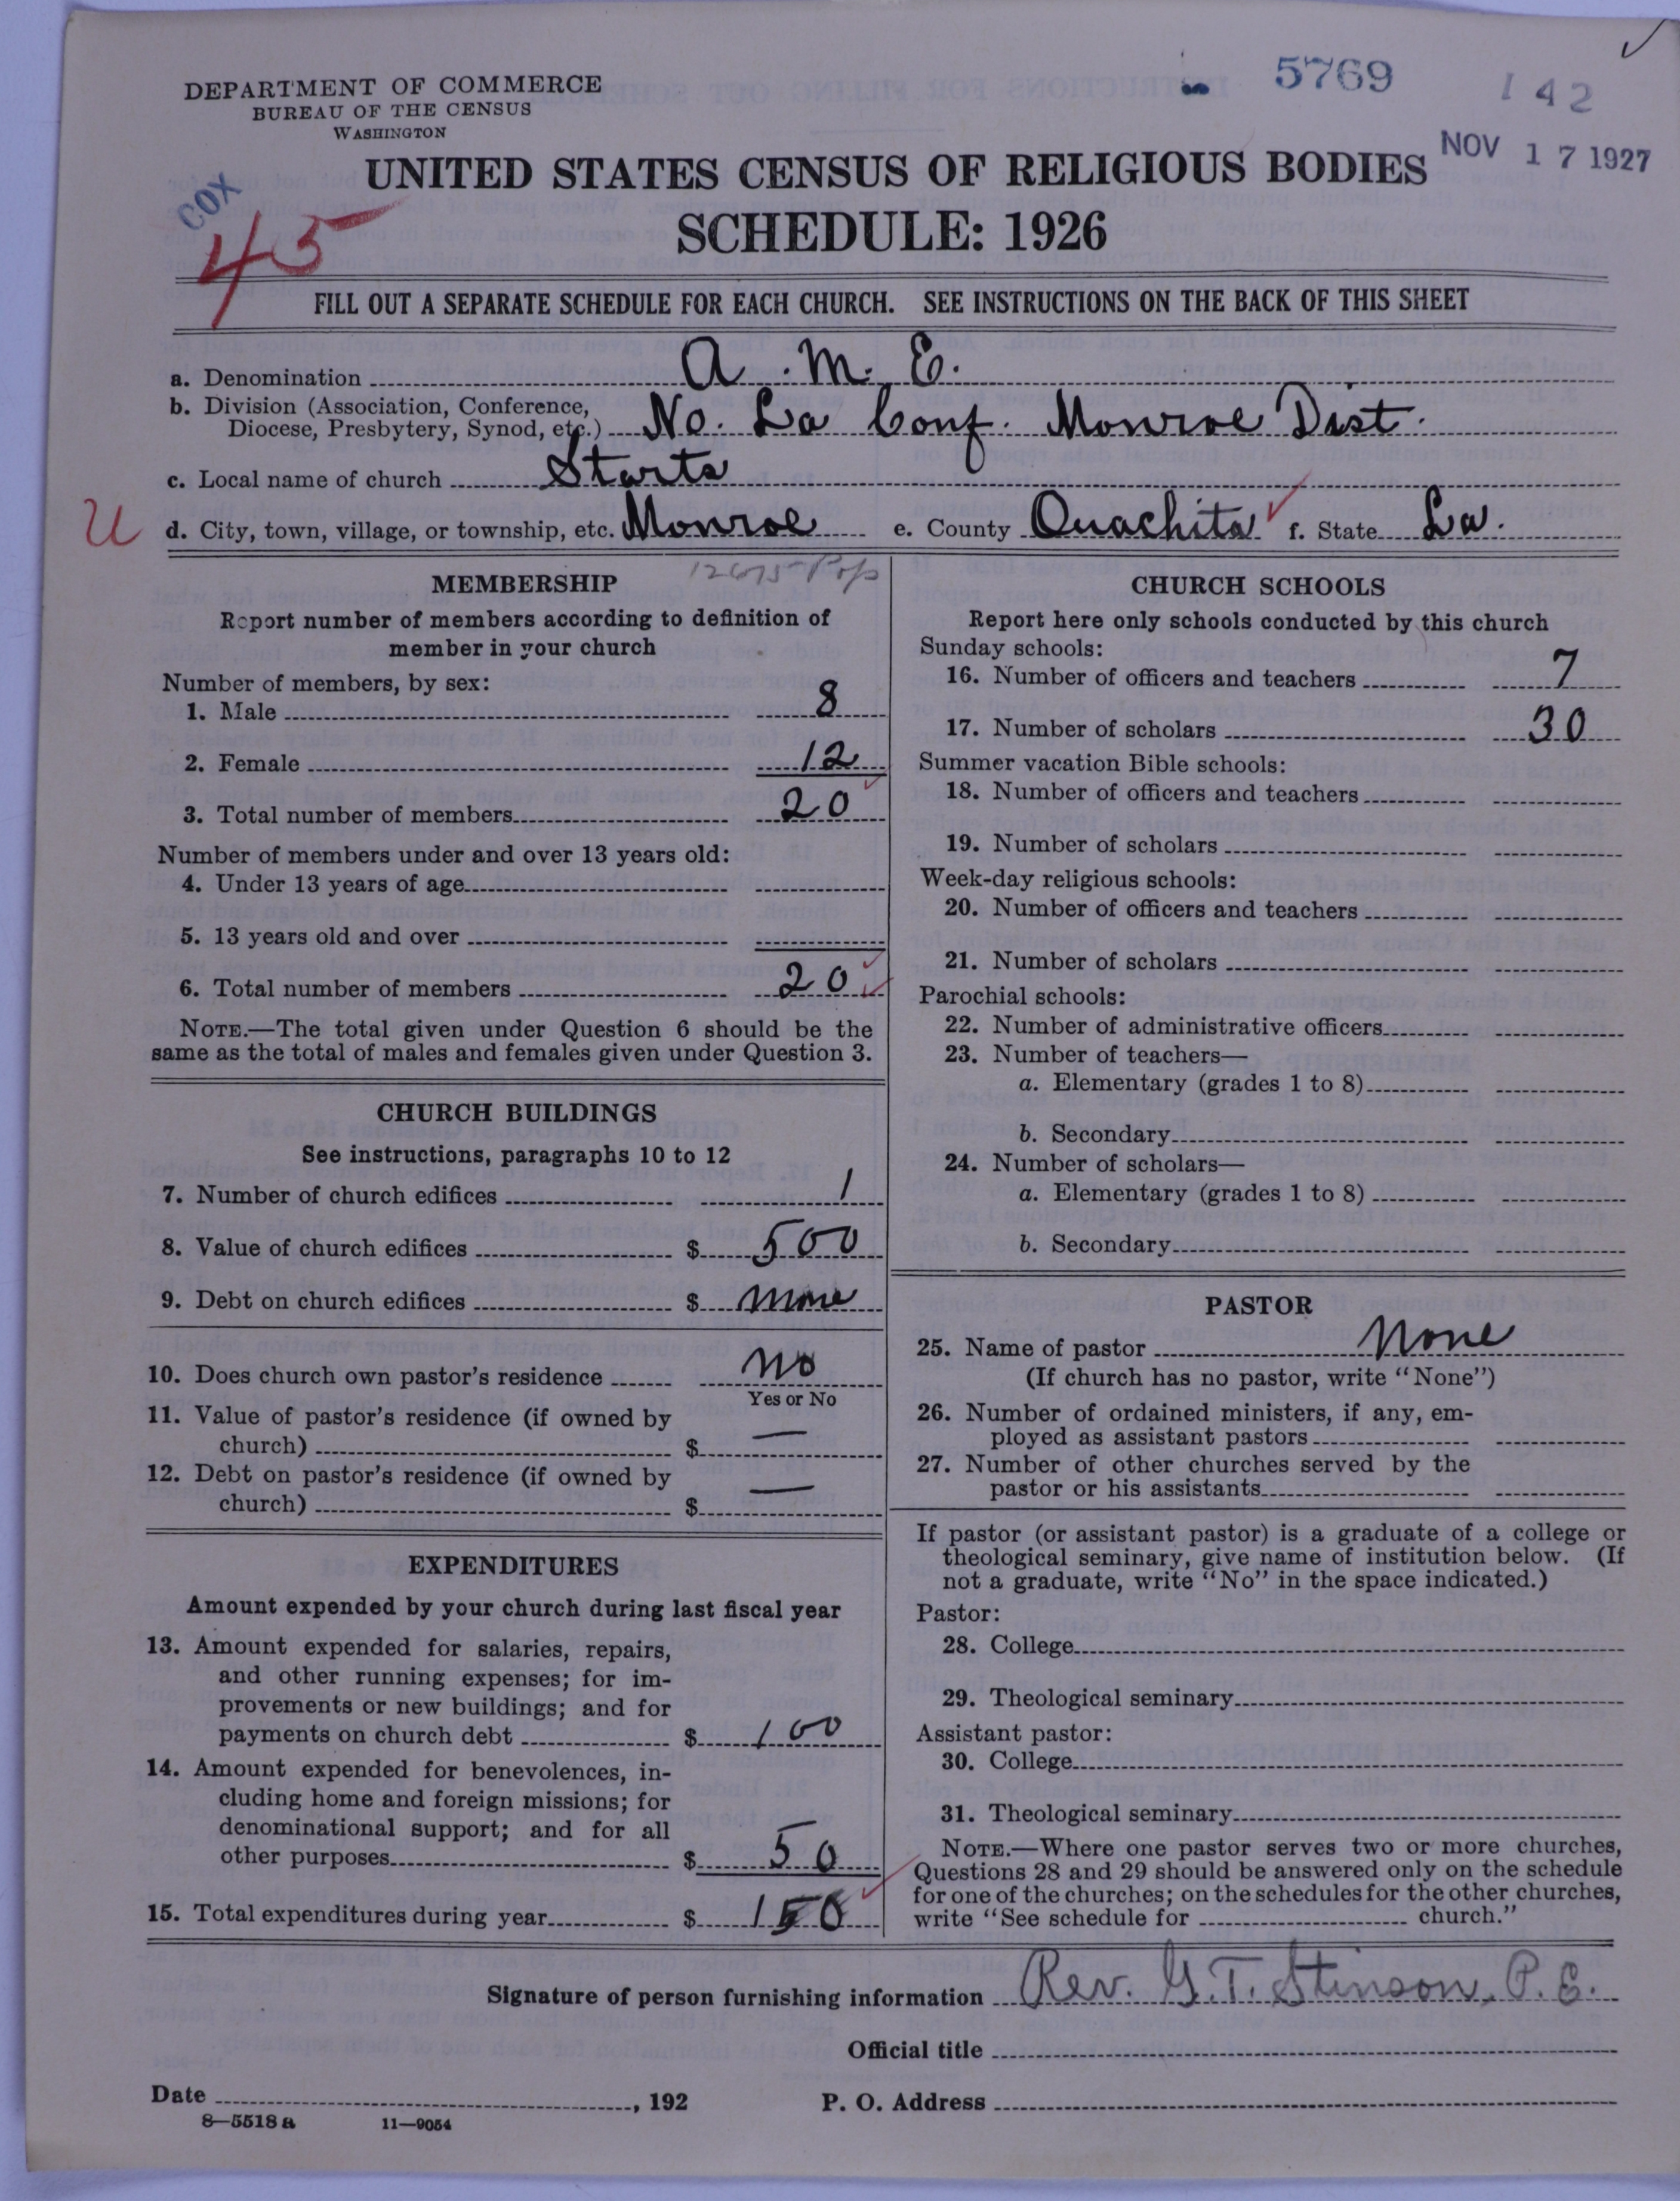 DEPARTMENT OF COMMERCE
BUREAU OF THE CENSUS
WASHINGTON
5769
142
NOV 17 1927
COX
45
UNITED STATES CENSUS OF RELIGIOUS BODIES
SCHEDULE: 1926
FILL OUT A SEPARATE SCHEDULE FOR EACH CHURCH. SEE INSTRUCTIONS ON THE BACK OF THIS SHEET
a. Denomination A. M. E.
b. Division (Association, Conference,
Diocese, Presbytery, Synod, etc.) No. La Conf. Monroe Dist.
c. Local name of church Starts
U d. City, town, village, or township, etc. Monroe e. County Ouachita f. State La.
12675 Pop
MEMBERSHIP
Report number of members according to definition of
member in your church
Number of members, by sex:
1. Male 8
2. Female 12
3. Total number of members 20
Number of members under and over 13 years old:
4. Under 13 years of age
5. 13 years old and over
6. Total number of members 20
NOTE.—The total given under Question 6 should be the
same as the total of males and females given under Question 3.
CHURCH BUILDINGS
See instructions, paragraphs 10 to 12
7. Number of church edifices 1
8. Value of church edifices $ 500
9. Debt on church edifices $ None
10. Does church own pastor's residence No
Yes or No
11. Value of pastor's residence (if owned by
church) $ —
12. Debt on pastor's residence (if owned by
church) $ —
EXPENDITURES
Amount expended by your church during last fiscal year
13. Amount expended for salaries, repairs,
and other running expenses; for im-
provements or new buildings; and for
payments on church debt $ 100
14. Amount expended for benevolences, in-
cluding home and foreign missions; for
denominational support; and for all
other purposes $ 50
15. Total expenditures during year $ 150
CHURCH SCHOOLS
Report here only schools conducted by this church
Sunday schools:
16. Number of officers and teachers 7
17. Number of scholars 30
Summer vacation Bible schools:
18. Number of officers and teachers
19. Number of scholars
Week-day religious schools:
20. Number of officers and teachers
21. Number of scholars
Parochial schools:
22. Number of administrative officers
23. Number of teachers—
a. Elementary (grades 1 to 8)
b. Secondary
24. Number of scholars—
a. Elementary (grades 1 to 8)
b. Secondary
PASTOR
25. Name of pastor None
(If church has no pastor, write "None")
26. Number of ordained ministers, if any, em-
ployed as assistant pastors
27. Number of other churches served by the
pastor or his assistants
If pastor (or assistant pastor) is a graduate of a college or
theological seminary, give name of institution below. (If
not a graduate, write "No" in the space indicated.)
Pastor:
28. College
29. Theological seminary
Assistant pastor:
30. College
31. Theological seminary
NOTE.—Where one pastor serves two or more churches,
Questions 28 and 29 should be answered only on the schedule
for one of the churches; on the schedules for the other churches,
write "See schedule for church."
Signature of person furnishing information Rev. G. T. Stinson, P. E.
Official title
Date , 192 P. O. Address
8—5518a 11—9054